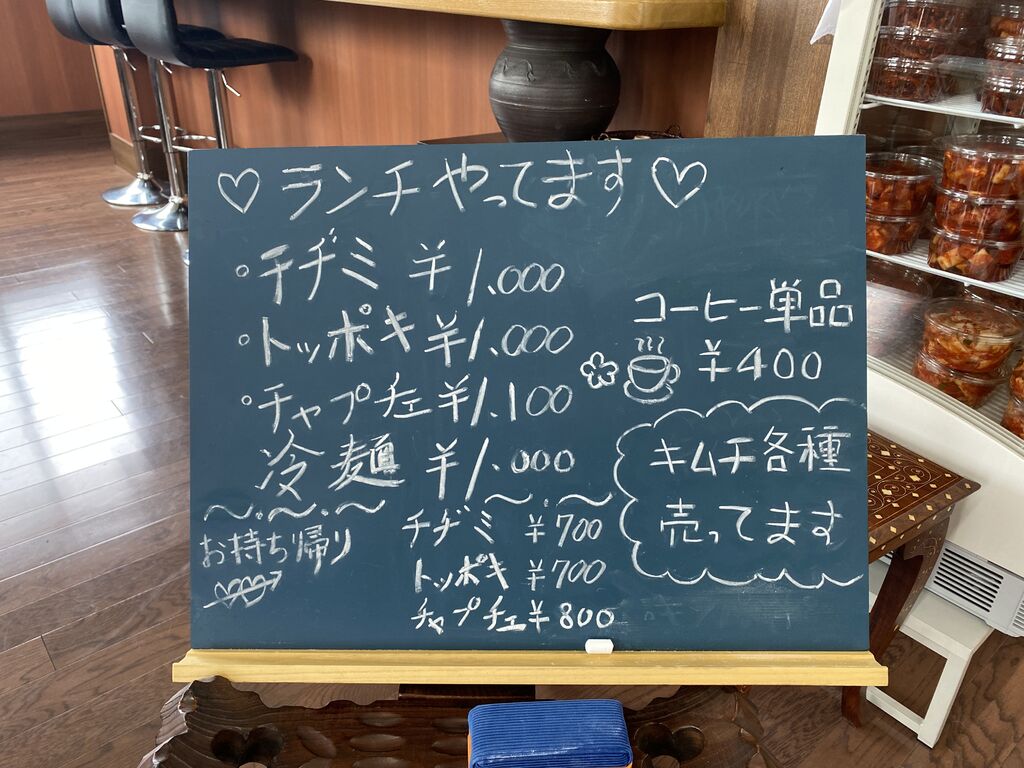 ♡ランチやってます♡
・チヂミ ¥1.000
・トッポキ ¥1.000
・チャプチェ ¥1.100
冷麺 ¥1.000
コーヒー単品
¥400
キムチ各種
売ってます
お持ち帰り
チヂミ ¥700
トッポキ ¥700
チャプチェ ¥800